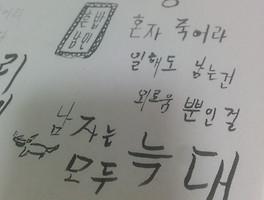 혼밥
남인
혼자 죽어라
일해도 남는건
외로움 뿐인걸
남자는
모두 늑대
리